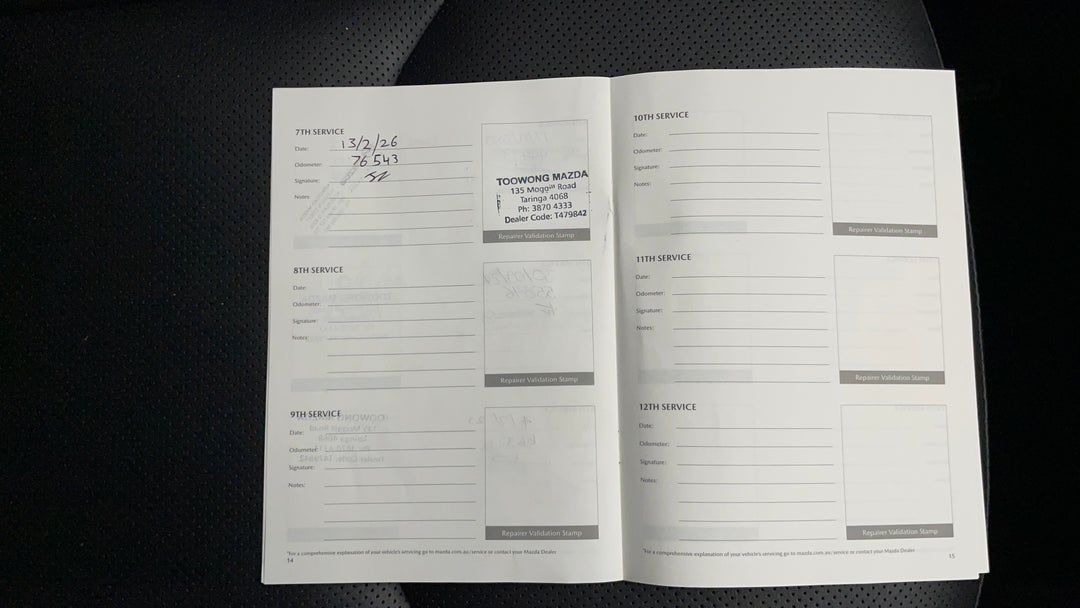 7TH SERVICE
Date: 13/2/26
Odometer: 76 543
Signature:
Notes:
TOOWONG MAZDA
135 Moggill Road
Taringa 4068
Ph: 3870 4333
Dealer Code: T479842
Repairer Validation Stamp
8TH SERVICE
Date:
Odometer:
Signature:
Notes:
Repairer Validation Stamp
9TH SERVICE
Date:
Odometer:
Signature:
Notes:
Repairer Validation Stamp
*For a comprehensive explanation of your vehicle's servicing go to mazda.com.au/service or contact your Mazda Dealer
14
10TH SERVICE
Date:
Odometer:
Signature:
Notes:
Repairer Validation Stamp
11TH SERVICE
Date:
Odometer:
Signature:
Notes:
Repairer Validation Stamp
12TH SERVICE
Date:
Odometer:
Signature:
Notes:
Repairer Validation Stamp
*For a comprehensive explanation of your vehicle's servicing go to mazda.com.au/service or contact your Mazda Dealer
15